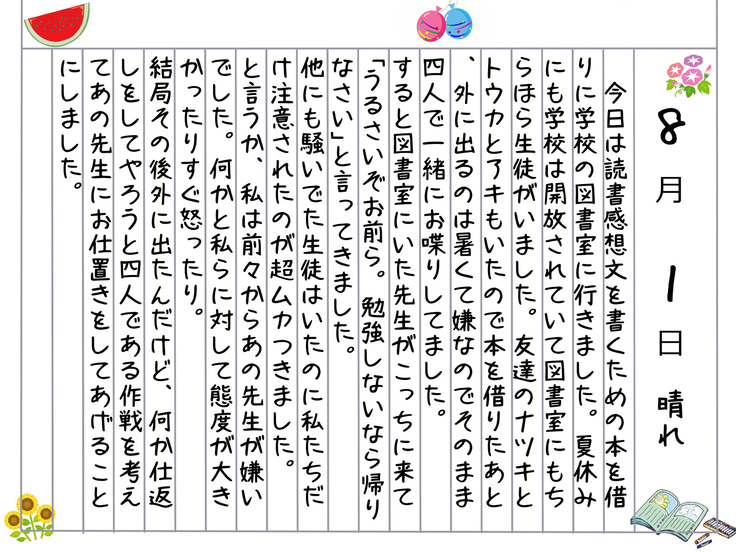 8月 1日 晴れ
今日は読書感想文を書くための本を借
りに学校の図書室に行きました。夏休み
にも学校は開放されていて図書室にもち
らほら生徒がいました。友達のナツキと
トウカとアキもいたので本を借りたあと
、外に出るのは暑くて嫌なのでそのまま
四人で一緒にお喋りしてました。
すると図書室にいた先生がこっちに来て
「うるさいぞお前ら。勉強しないなら帰り
なさい」と言ってきました。
他にも騒いでた生徒はいたのに私たちだ
け注意されたのが超ムカつきました。
と言うか、私は前々からあの先生が嫌い
でした。何かと私らに対して態度が大き
かったりすぐ怒ったり。
結局その後外に出たんだけど、何か仕返
しをしてやろうと四人である作戦を考え
てあの先生にお仕置きをしてあげること
にしました。